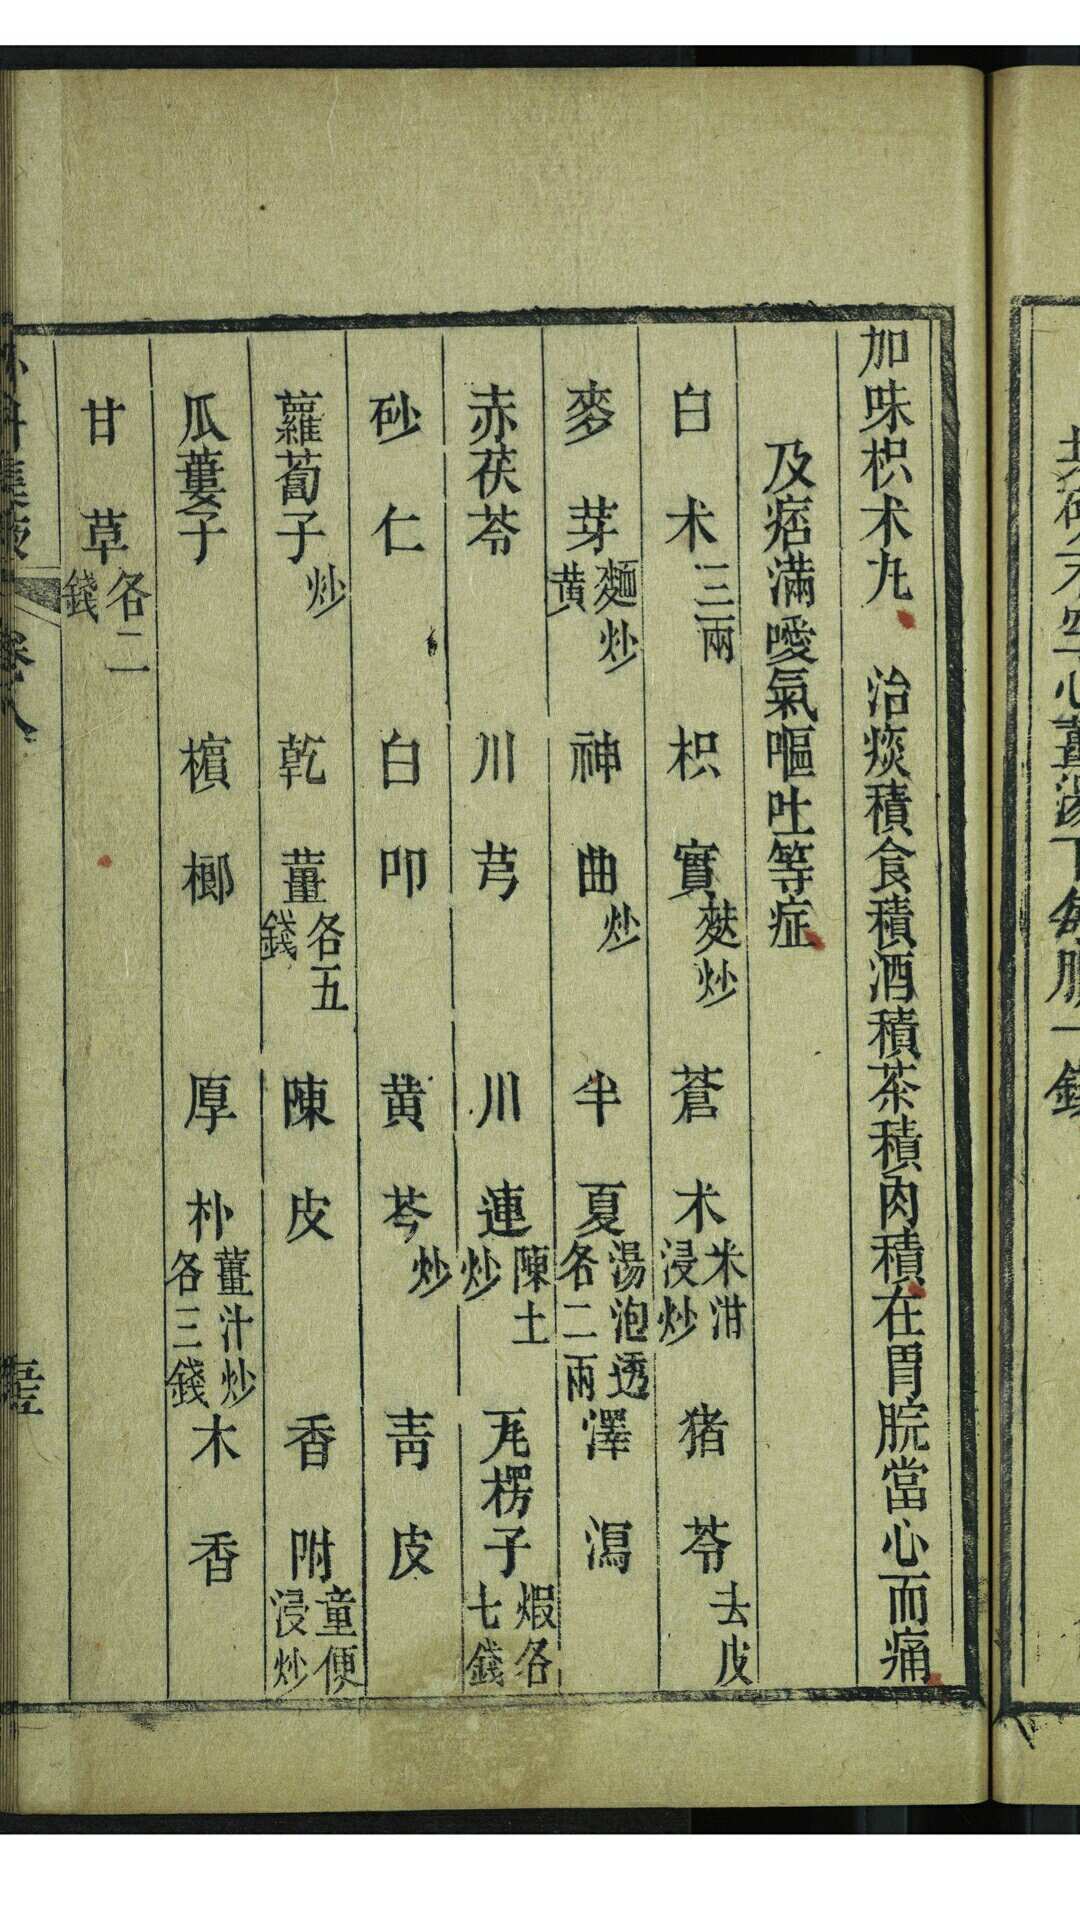 共研末空心薑湯下每服一錢
加味枳朮丸　治痰積食積酒積茶積肉積在胃脘當心而痛
及痞滿噯氣嘔吐等症
白朮三兩　枳實麩炒　蒼朮米泔浸炒　猪苓去皮
麥芽麵炒黄　神曲炒　半夏湯泡透各二兩　澤瀉
赤茯苓　川芎　川連陳土炒　瓦楞子煆各七錢
砂仁　白叩　黄芩炒　靑皮
蘿蔔子炒　乾薑各五錢　陳皮　香附童便浸炒
瓜蔞子　檳榔　厚朴薑汁炒各三錢　木香
甘草各二錢
卷八